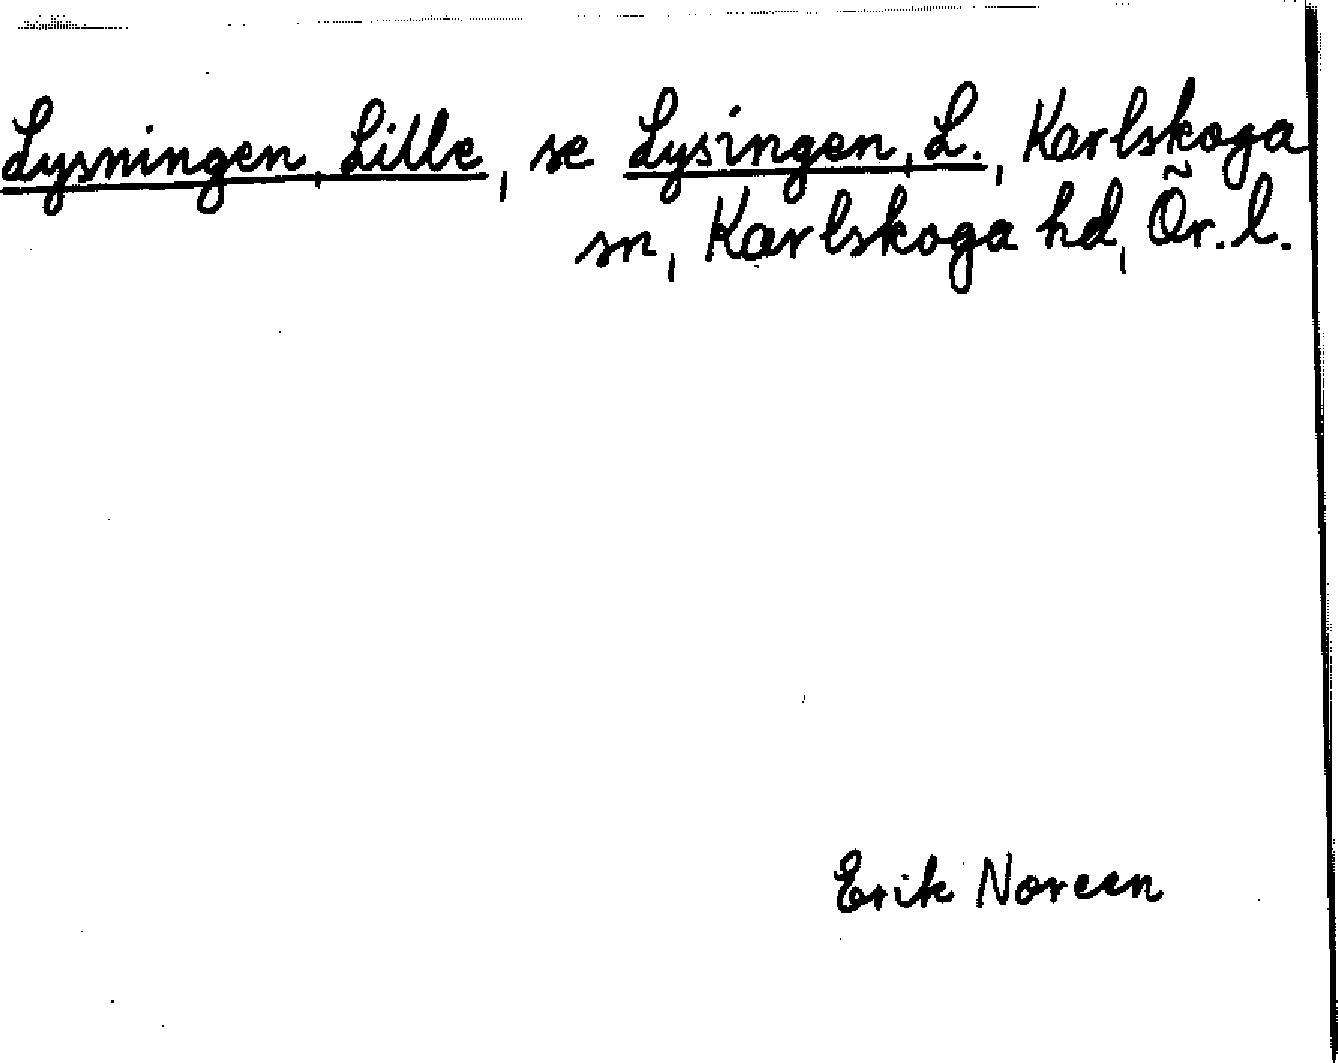 Lysningen, Lille, se Lysingen, L., Karlskoga
sn, Karlskoga hd, Ör. l.
Erik Noreen